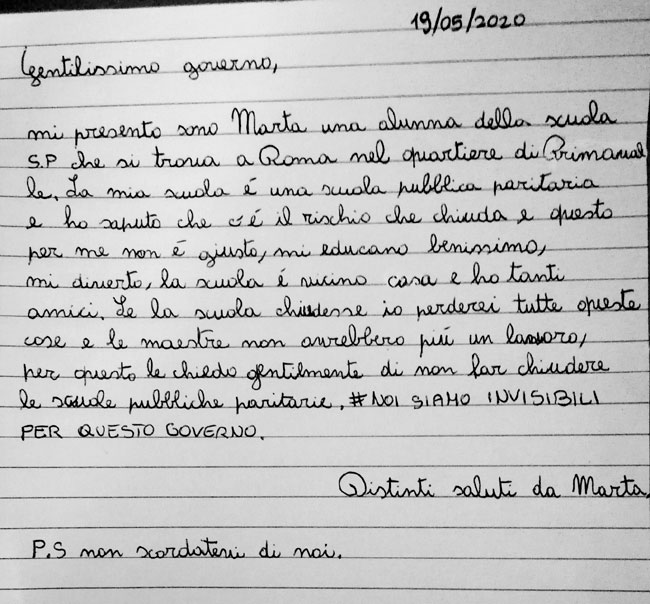 19/05/2020
Gentilissimo governo,
mi presento sono Marta una alunna della scuola
S.P che si trova a Roma nel quartiere di Primaval
le. La mia scuola é una scuola pubblica paritaria
e ho saputo che c'é il rischio che chiuda e questo
per me non é giusto, mi educano benissimo,
mi diverto, la scuola é vicino casa e ho tanti
amici. Se la scuola chiudesse io perderei tutte queste
cose e le maestre non avrebbero piú un lavoro,
per questo le chiedo gentilmente di non far chiudere
le scuole pubbliche paritarie. #NOI SIAMO INVISIBILI
PER QUESTO GOVERNO.
Distinti saluti da Marta.
P.S non scordatevi di noi.